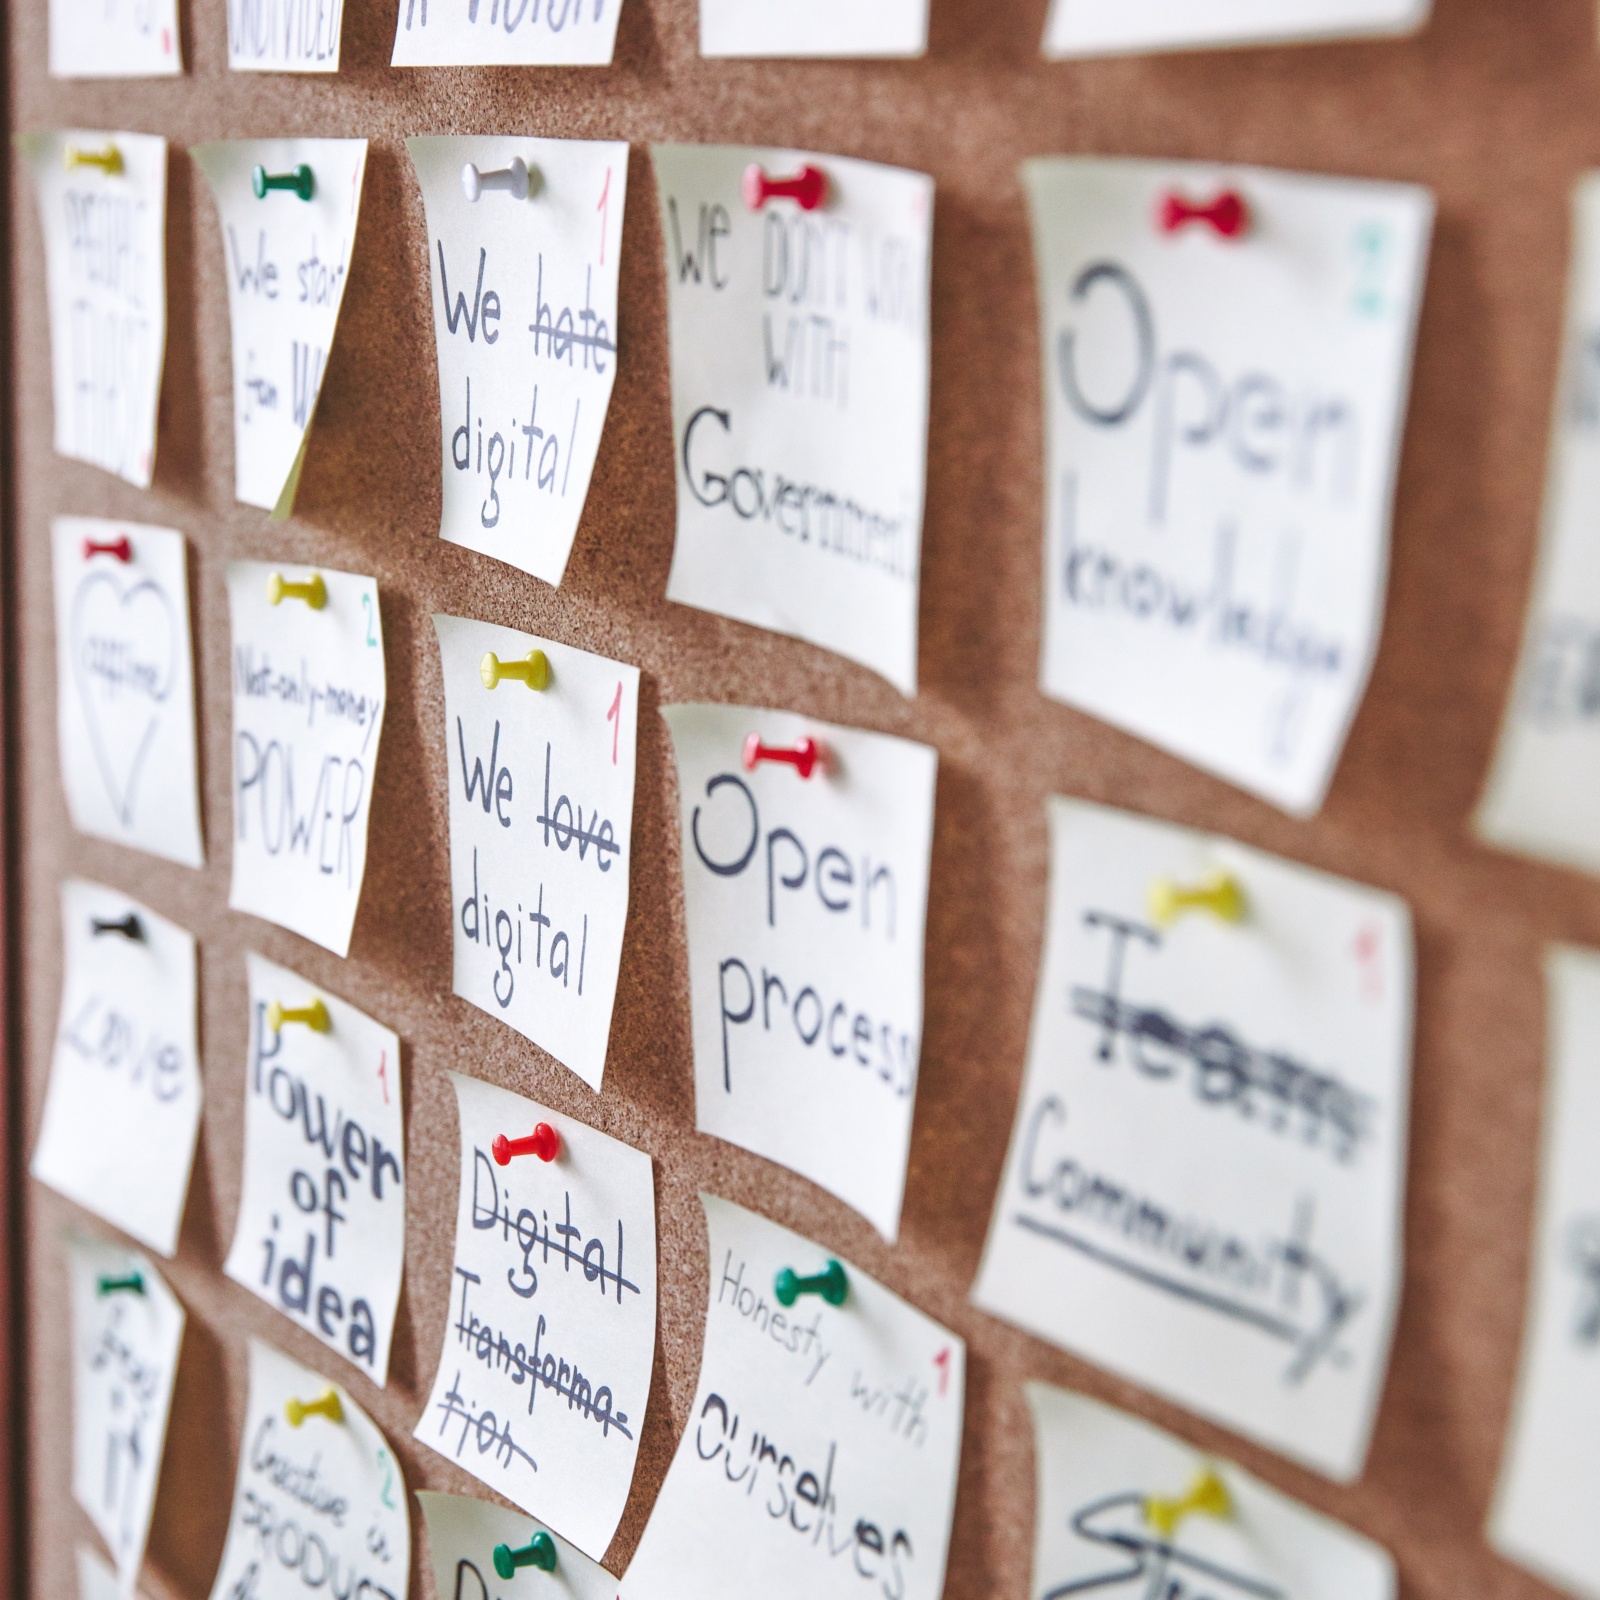 UNDIVIDED
PEOPLE
FIRST
We start
1
We hate
digital
We DON'T WORK
WITH
Government
2
Open
knowledge
offline
2
Not-only-money
POWER
1
We love
digital
Open
process
1
Team
Community
Love
1
Power
of
idea
Digital
Transforma-
tion
1
Honesty with
ourselves
2
Creative in
PRODUCT